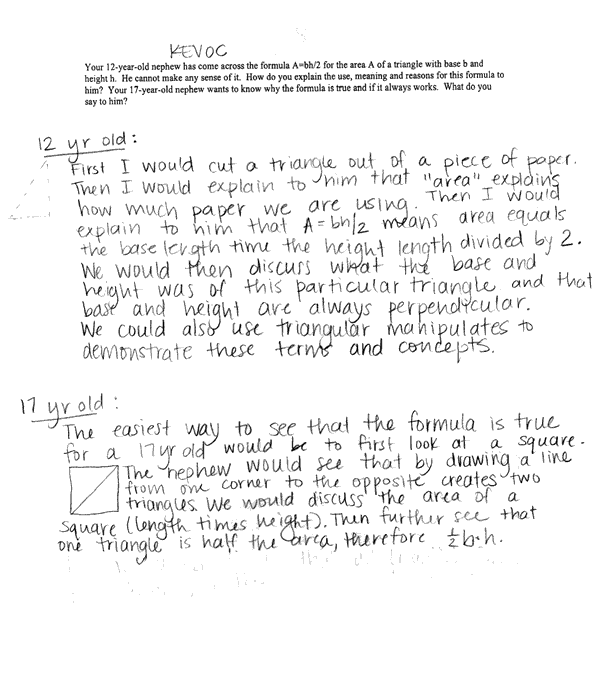 KEVOC
Your 12-year-old nephew has come across the formula A=bh/2 for the area A of a triangle with base b and
height h. He cannot make any sense of it. How do you explain the use, meaning and reasons for this formula to
him? Your 17-year-old nephew wants to know why the formula is true and if it always works. What do you
say to him?
12 yr old:
First I would cut a triangle out of a piece of paper.
Then I would explain to him that "area" explains
how much paper we are using. Then I would
explain to him that A=bh/2 means area equals
the base length time the height length divided by 2.
We would then discuss what the base and
height was of this particular triangle and that
base and height are always perpendicular.
We could also use triangular manipulates to
demonstrate these terms and concepts.
17 yr old:
The easiest way to see that the formula is true
for a 17 yr old would be to first look at a square.
The nephew would see that by drawing a line
from one corner to the opposite creates two
triangles. We would discuss the area of a
square (length times height). Then further see that
one triangle is half the area, therefore ½b·h.